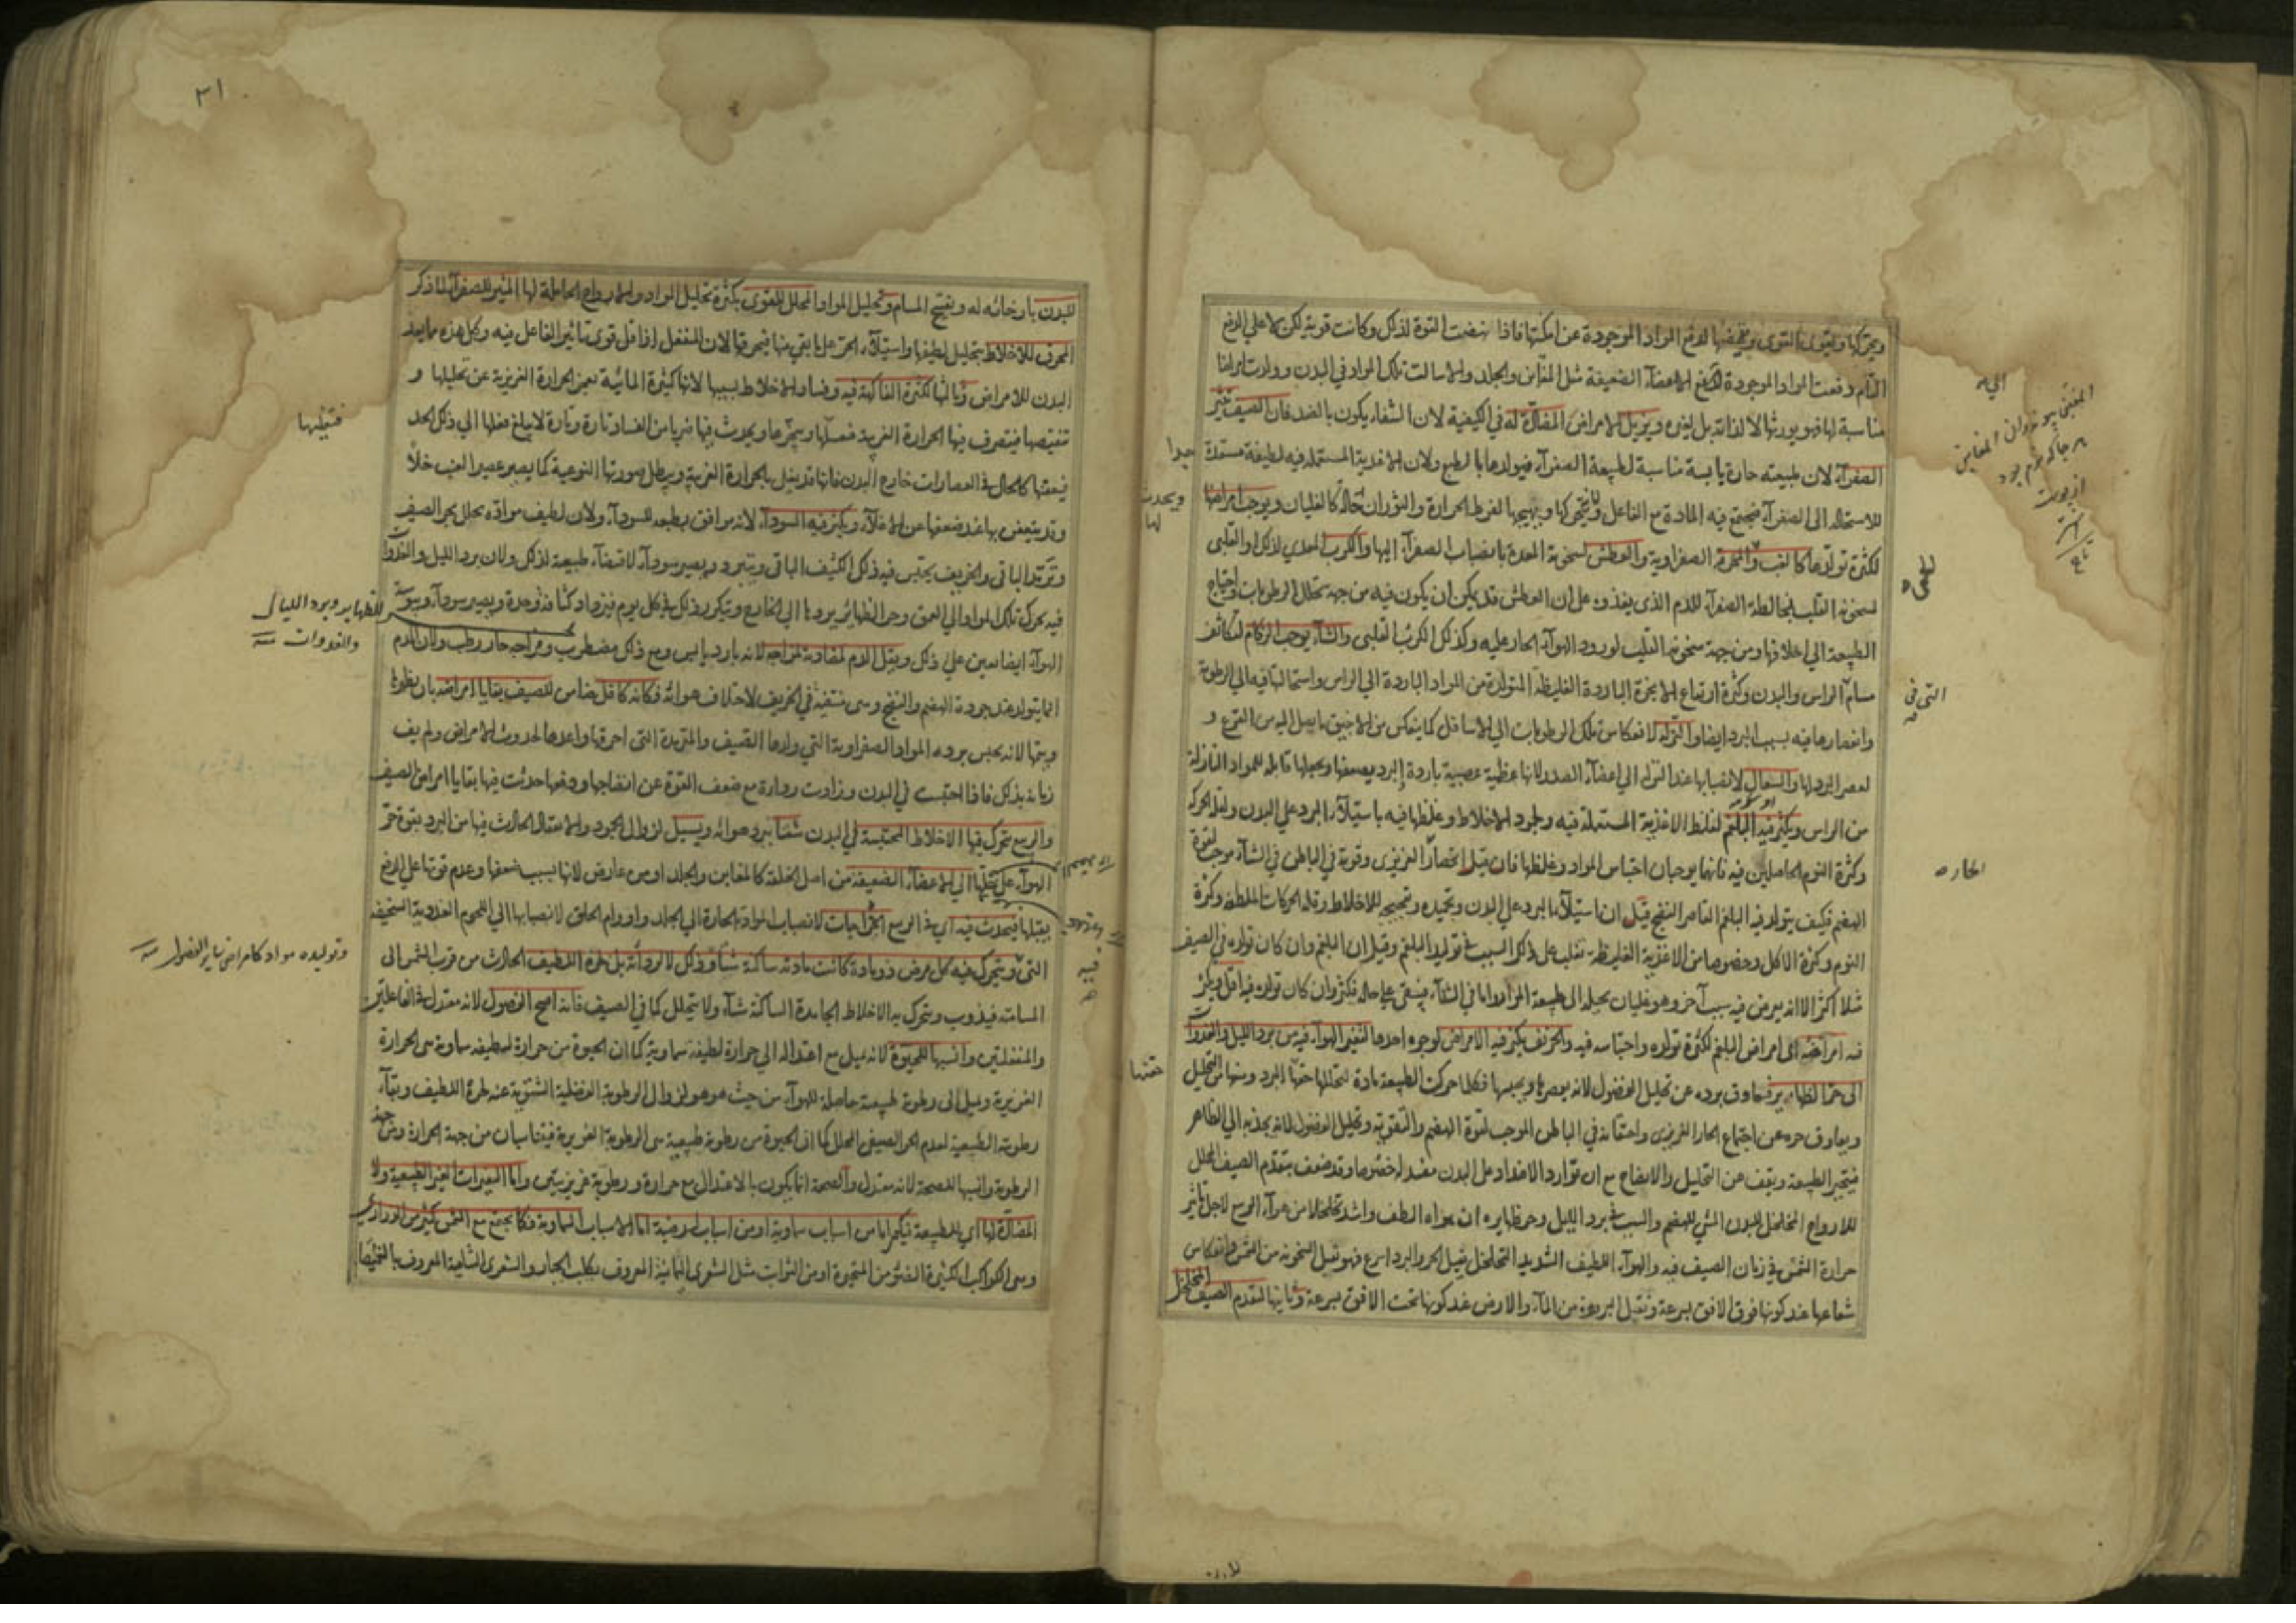 ويحركها ويقوى القوى ويهيجها لدفع المواد الموجودة عن امكنتها فاذا نهضت القوة لذلك وكانت قوية لكن لا على الدفع
التام دفعت المواد الموجودة الى الاعضاء الضعيفة مثل المغابن والجلد والا سالت تلك المواد في البدن وولدت امراضا
مناسبة لها فهو يورثها لا لذاته بل لغيره ويزيل الامراض المضادة له في الكيفية لان الشفاء يكون بالضد فان الصيف يثير
الصفراء لان طبيعته حارة يابسة مناسبة لطبيعة الصفراء فيولدها بالطبع ولان الاغذية المستعملة فيه لطيفة مستعدة
للاستحالة الى الصفراء فيجتمع فيه المادة مع الفاعل ويحركها ويهيجها لفرط الحرارة والثوران كالغليان ويوجب امراضها
لكثرة تولدها كالغب والمحرقة الصفراوية والعطش لسخونة المعدة بانصباب الصفراء اليها والكرب المعدي لذلك او القلبي
لسخونة القلب لمخالطة الصفراء للدم الذي ينفذ وه على ان العطش قد يكن ان يكون فيه من جهة تحلل الرطوبات واحتياج
الطبيعة الى اخلافها ومن جهة سخونة القلب لورود الهواء الحار عليه وكذلك الكرب القلبي والشتاء يوجب الزكام لتكاثف
مسام الراس والبدن وكثرة ارتفاع الابخرة الباردة الغليظة المتولدة من المواد الباردة الى الراس واستحالتها فيه الى الرطوبة
وانعصارها فيه بسبب البرد ايضا والنزلة لانعكاس تلك الرطوبات الى الاسافل كما ينعكس من الانبيق ما يصل اليه من القرع و
لعصر البرد لها والسعال لانصبابها عند النزلة الى اعضاء الصدر لانها عظمية عصبية باردة البرد يضعفها ويجعلها قابلة للمواد النازلة
من الراس ويكثر فيه البلغم لغلظ الاغذية المستعملة فيه ولجمود الاخلاط وغلظها فيه باستيلاء البرد على البدن ولقلة الحركة
وكثرة النوم الحاصلين فيه فانهما يوجبان احتباس المواد وغلظها فان قيل انحصار الغريزى وقوته في الباطن في الشتاء موجب لقوة
الهضم فكيف يتولد فيه البلغم القاصر النضج قيل ان استيلاء البرد على البدن وتجميده وتفجيجه للاخلاط وقلة الحركات الملطفة وكثرة
النوم وكثرة الاكل وخصوصا من الاغذية الغليظة تغلب على ذلك السبب في توليد البلغم وقيل ان البلغم وان كان تولده في الصيف
مثلا اكثر الا انه يعرض فيه سبب آخر وهو غليان يحيله الى طبيعة المرار واما في الشتاء فيبقى على حاله فيكثر وان كان تولده فيه اقل ويكثر
فيه امراضه اى امراض البلغم لكثرة تولده واحتباسه فيه والخريف يكثر فيه الامراض لوجوه احدها لتغير الهواء فيه من برد الليل والغدوات
الى حر الظهاير فيعاوق برده عن تحليل الفضول لانه يعصرها ويحبسها فكلما حركت الطبيعة مادة لتحللها حقنها البرد ومنعها من التحليل
ويعاوق حره عن اجتماع الحار الغريزى واحتقانه في الباطن الموجب لقوة الهضم والتقوية وتحليل الفضول لانه يجذبه الى الظاهر
فتتحير الطبيعة ويقف عن التحليل والانضاج مع ان توارد الاضداد على البدن مفسد له خصوصا وقد ضعف بتقدم الصيف المحلل
للارواح المخلخل للبدن المسي للهضم والسبب في برد الليل وحر ظهايره ان هواه الطف واشد تخلخلا من هواء الربيع لاجل تاثير
حرارة الشمس في زمان الصيف فيه والهواء اللطيف الشديد التخلخل يقبل الحر والبرد اسرع فهو يقبل السخونة من الشمس وانعكاس
شعاعها عند كونها فوق الافق بسرعة ويقبل البرودة من الماء والارض عند كونها تحت الافق بسرعة وثانيها لتقدم الصيف المخلخل
جدا
ويحدث
لها
حقنها
التى فى
الحاره
٢١
للبدن بارخائه له وبفتح المسام وتحليل المواد المحلل للقوى بكثرة تحليل المواد والارواح الحاملة لها المثير للصفراء لما ذكر
المحرق للاخلاط بتحليل لطيفها واستيلاء الحر على ما بقى منها فيحرقها لان المنفعل اذا قل قوى تاثير الفاعل فيه وكل هذه مما يعد
البدن للامراض وثالثها لكثرة الفاكهة فيه وفساد الاخلاط بسببها لانها كثيرة المائية تعجز الحرارة الغريزية عن تحليلها و
تنقيصها فيتصرف فيها الحرارة الغريبة فتعفنها ويحدث فيها ضربا من الفساد تارة وتارة لا يبلغ فعلها الى ذلك الحد
فيعفنها كالحال في العصارات خارج البدن فانها قد يغلى بالحرارة الغريبة ويبطل صورتها النوعية كما يصير عصير العنب خلا
وقد يتعفن بها عند ضعفها عن الاغلاء ويكثر فيه السوداء لانه موافق بطبعه للسوداء ولان لطيف مواده يحلل بحر الصيف
وترمد الباقى والخريف يحتبس فيه ذلك الكثيف الباقى ويتبرد ويصير سوداء لاقتضاء طبيعة لذلك ولان برد الليل والغدوات
فيه يحرك تلك المواد الى العمق وحر الظهاير يردها الى الخارج ويتكرر ذلك في كل يوم فيزداد كثافة وحدة ويصير سوداء ويبوسة
الهواء ايضا معين على ذلك ويقل الدم لمضادته لمزاجه لانه بارد يابس ومع ذلك مضطرب ومزاجه حار رطب ولان الدم
انما يتولد عند جودة الهضم والنضج وهى منتفية في الخريف لاختلاف هوائه فكانه كافل ضامن للصيف بقايا امراضه بان يظهرها
ويتمها لانه يحبس برده المواد الصفراوية التي ولدها الصيف والمترمدة التى احرقها واعدها لحدوث الامراض ولم يف
زمانه بذلك فاذا احتبست في البدن وزادت رداءة مع ضعف القوة عن انضاجها ودفعها حدثت فيها بقايا امراض الصيف
والربيع تتحرك فيها الاخلاط المحتبسة في البدن شتاء ببرد هوائه ويسيل لزوال الجمود والانعقاد الحادث فيها من البرد بقوة حر
الهواء على نقلها الى الاعضاء الضعيفة من اصل الخلقة كالمغابن والجلد او من عارض لانها بسبب ضعفها وعدم قوتها على الدفع
يقبلها فيحدث فيه اى في الربيع الخراجات لانصباب المواد الحارة الى الجلد واورام الحلق لانصبابها الى اللحوم الغددية السخيفة
التى ويتحرك فيه كل مرض ذو مادة كانت مادته ساكنة شتاء وذلك لا لرداءته بل لحره اللطيف الحادث من قرب الشمس الى
المسامتة فيذوب ويتحرك به الاخلاط الجامدة الساكنة شتاء ولا يتحلل كما في الصيف فانه اصح الفصول لانه معتدل في الفاعلتين
والمنفعلتين وانسبها للحيوة لانه يميل مع اعتداله الى حرارة لطيفة سماوية كما ان الحيوة من حرارة لطيفة سماوية هى الحرارة
الغريزية ويميل الى رطوبة طبيعية حاصلة للهواء من حيث هو هو لزوال الرطوبة الفضلية الشتوية عنه لحره اللطيف وبقاء
رطوبته الطبيعية لعدم الحر الصيفى المحلل كما ان الحيوة من رطوبة طبيعية هى الرطوبة الغريزية فيتناسبان من جهة الحرارة ومن جهة
الرطوبة وانسبها للصحة لانه معتدل والصحة انما يكون بالاعتدال مع حرارة ورطوبة غريزيتين واما التغيرات الغير الطبيعية ولا
المضادة لها اى للطبيعة فيكون اما من اسباب سماوية او من اسباب ارضية اما الاسباب السماوية فكما يجتمع مع الشمس كثير من الدراري
وهى الكواكب الكثيرة الضوء من المتحيرة او من الثوابت مثل الشعرى اليمانية المعروف بكلب الجبار والشعرى الشامية المعروف بالغميصا
فتغليها
للظهاير وبرد الليالى
والغدوات
وتوليده مواد كامراض ساير الفصول
فيه